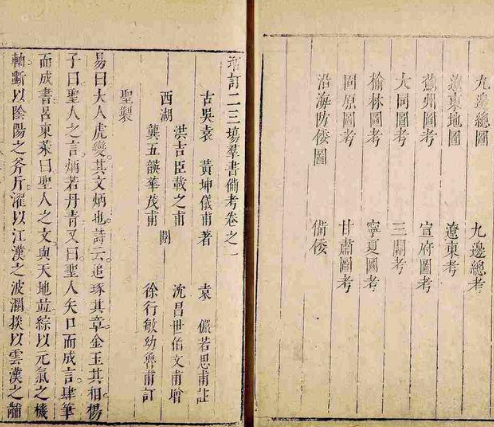 九邊總圖 九邊總考
遼東地圖 遼東考
薊州圖考 宣府圖考
大同圖考 三關考
榆林圖考 寧夏圖考
固原圖考 甘肅圖考
沿海防倭圖 備倭
增訂二三塲羣書備考卷之一
古吳袁 黃坤儀甫著 袁 儼若思甫註
洪吉臣載之甫 沈昌世伯文甫增
西湖 閱
龔五韺華茂甫 徐行敏幼魯甫訂
聖製
易曰大人虎變其文炳也詩云追琢其章金玉其相楊
子曰聖人之言炳若丹青又曰聖人矢口而成言肆筆
而成書呂東萊曰聖人之文與天地並綜以元氣之機
軸斷以陰陽之斧斤濯以江漢之波瀾掞以雲漢之黼